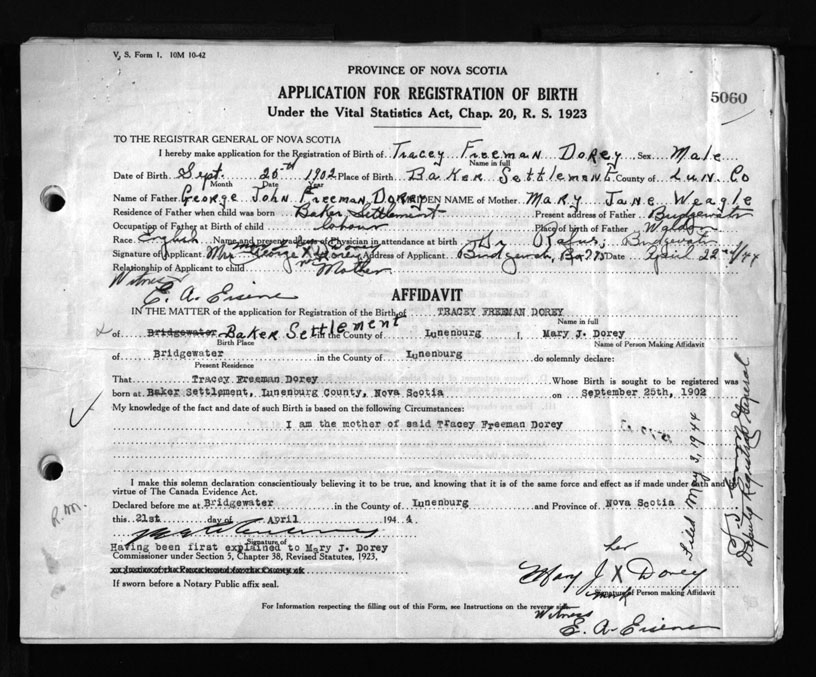 V. S. Form 1. 10M 10-42
PROVINCE OF NOVA SCOTIA
APPLICATION FOR REGISTRATION OF BIRTH
5060
Under the Vital Statistics Act, Chap. 20, R. S. 1923
TO THE REGISTRAR GENERAL OF NOVA SCOTIA
I hereby make application for the Registration of Birth of Tracey Freeman Dorey Sex Male
Name in full
Date of Birth Sept. 25th 1902 Place of Birth Baker Settlement County of Lun. Co
Month Date Year
Name of Father George John Freeman Dorey MAIDEN NAME of Mother Mary Jane Weagle
Residence of Father when child was born Baker Settlement Present address of Father Bridgewater
Occupation of Father at Birth of child labour Place of birth of Father
Race English Name and present address of Physician in attendance at birth Dr Bridgewater
Signature of Applicant Mrs George X Dorey Address of Applicant Bridgewater, Date April 22nd/44
Relationship of Applicant to child Mother
Witness
E. A. Eisenor
AFFIDAVIT
IN THE MATTER of the application for Registration of the Birth of TRACEY FREEMAN DOREY
Name in full
of Bridgewater Baker Settlement in the County of Lunenburg I, Mary J. Dorey
Birth Place Name of Person Making Affidavit
of Bridgewater in the County of Lunenburg do solemnly declare:
Present Residence
That Tracey Freeman Dorey Whose Birth is sought to be registered was
born at Baker Settlement, Lunenburg County, Nova Scotia on September 25th, 1902
My knowledge of the fact and date of such Birth is based on the following Circumstances:
I am the mother of said Tracey Freeman Dorey
I make this solemn declaration conscientiously believing it to be true, and knowing that it is of the same force and effect as if made under oath and by
virtue of The Canada Evidence Act.
R.M.
Declared before me at Bridgewater in the County of Lunenburg and Province of Nova Scotia
this 21st day of April 1944
Signature of
Having been first explained to Mary J. Dorey
Commissioner under Section 5, Chapter 38, Revised Statutes, 1923,
If sworn before a Notary Public affix seal.
her
Mary J X Dorey
mark
Signature of Person making Affidavit
For Information respecting the filling out of this Form, see Instructions on the reverse side.
Witness
E. A. Eisenor
Filed May 3, 1944
Deputy Registrar General